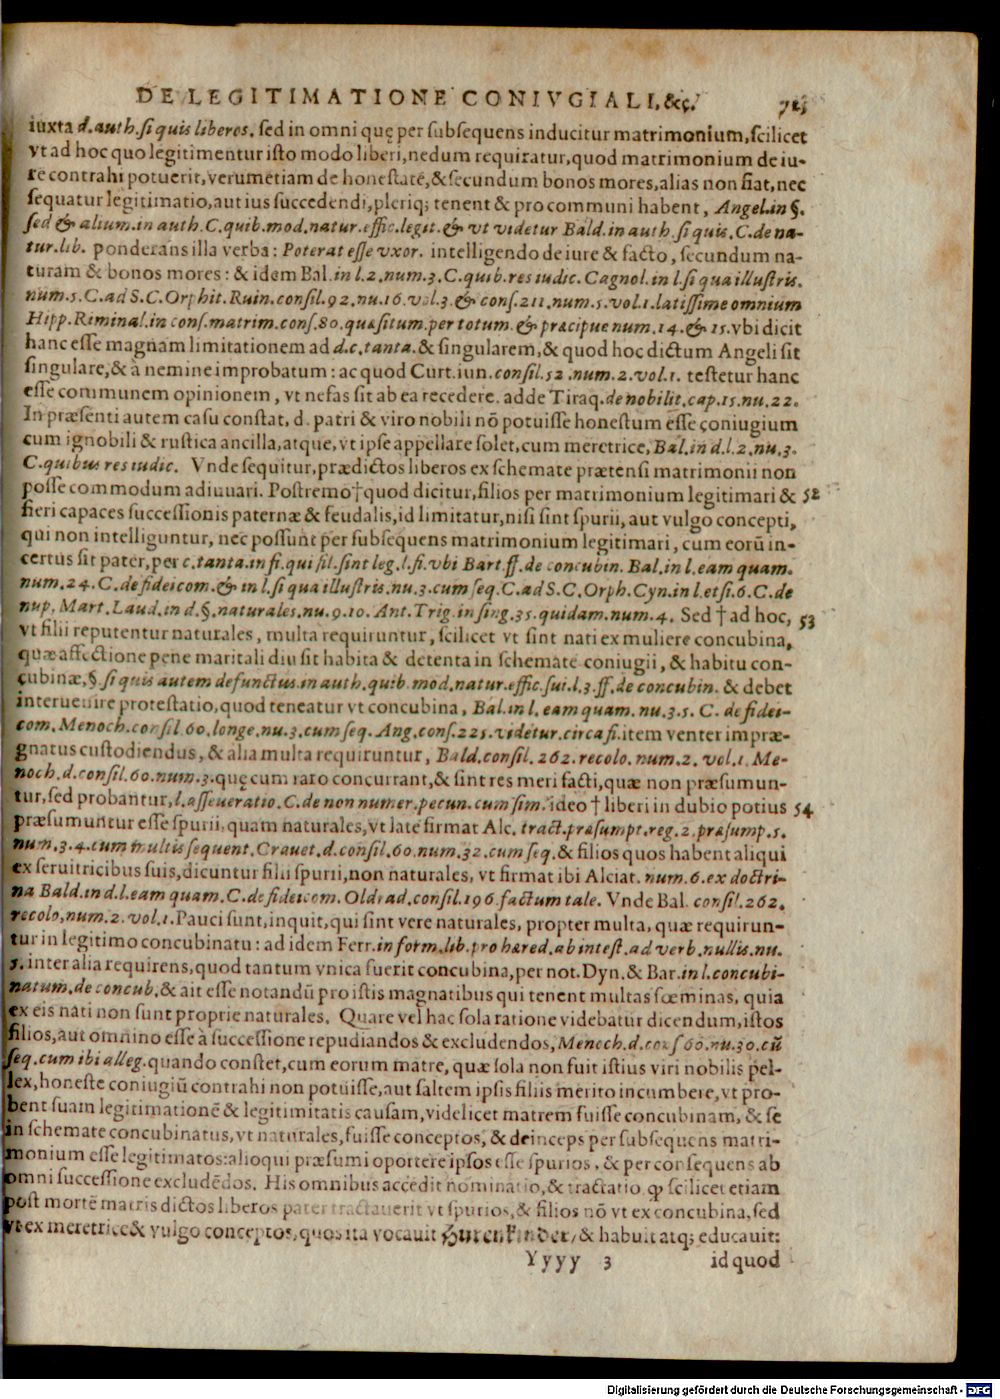 DE LEGITIMATIONE CONIVGIALI, &c. 725
iuxta d. auth. si quis liberos. sed in omni quę per subsequens inducitur matrimonium, scilicet
vt ad hoc quo legitimentur isto modo liberi, nedum requiratur, quod matrimonium de iu-
re contrahi potuerit, verumetiam de honestate, & secundum bonos mores, alias non fiat, nec
sequatur legitimatio, aut ius succedendi, pleriq; tenent & pro communi habent, Angel. in §.
sed & alium. in auth. C. quib. mod. natur. effic. legit. & vt videtur Bald. in auth. si quis. C. de na-
tur. lib. ponderans illa verba: Poterat esse vxor. intelligendo de iure & facto, secundum na-
turam & bonos mores: & idem Bal. in l. 2. num. 3. C. quib. res iudic. Cagnol. in l. si qua illustris.
num. 5. C. ad S. C. Orphit. Ruin. consil. 92. nu. 16. vol. 3. & cons. 211. num. 5. vol. 1. latissime omnium
Hipp. Riminal. in cons. matrim. cons. 80. quæsitum. per totum. & præcipue num. 14. & 15. vbi dicit
hanc esse magnam limitationem ad d. c. tanta. & singularem, & quod hoc dictum Angeli sit
singulare, & à nemine improbatum: ac quod Curt. iun. consil. 52. num. 2. vol. 1. testetur hanc
esse communem opinionem, vt nefas sit ab ea recedere. adde Tiraq. de nobilit. cap. 15. nu. 22.
In præsenti autem casu constat, d. patri & viro nobili nō potuisse honestum esse coniugium
cum ignobili & rustica ancilla, atque, vt ipse appellare solet, cum meretrice, Bal. in d. l. 2. nu. 3.
C. quibus res iudic. Vnde sequitur, prædictos liberos ex schemate prætensi matrimonii non
posse commodum adiuuari. Postremo † quod dicitur, filios per matrimonium legitimari & 52
fieri capaces successionis paternæ & feudalis, id limitatur, nisi sint spurii, aut vulgo concepti,
qui non intelliguntur, nec possunt per subsequens matrimonium legitimari, cum eorū in-
certus sit pater, per c. tanta. in fi. qui fil. sint leg. l. fi. vbi Bart. ff. de concubin. Bal. in l. eam quam.
num. 24. C. de fideicom. & in l. si qua illustris. nu. 3. cum seq. C. ad S. C. Orph. Cyn. in l. etsi. 6. C. de
nup. Mart. Laud. in d. §. naturales. nu. 9. 10. Ant. Trig. in sing. 35. quidam. num. 4. Sed † ad hoc, 53
vt filii reputentur naturales, multa requiruntur, scilicet vt sint nati ex muliere concubina,
quæ affectione pene maritali diu sit habita & detenta in schemate coniugii, & habitu con-
cubinæ, §. si quis autem defunctus. in auth. quib. mod. natur. effic. sui. l. 3. ff. de concubin. & debet
interuenire protestatio, quod teneatur vt concubina, Bal. in l. eam quam. nu. 3. 5. C. de fidei-
com. Menoch. consil. 60. longe. nu. 3. cum seq. Ang. cons. 225. videtur. circa fi. item venter impræ-
gnatus custodiendus, & alia multa requiruntur, Bald. consil. 262. recolo. num. 2. vol. 1. Me-
noch. d. consil. 60. num. 3. quę cum raro concurrant, & sint res meri facti, quæ non præsumun-
tur, sed probantur, l. asseueratio. C. de non numer. pecun. cum sim. ideo † liberi in dubio potius 54
præsumuntur esse spurii, quam naturales, vt late firmat Alc. tract. præsumpt. reg. 2. præsump. 5.
num. 3. 4. cum multis sequent. Crauet. d. consil. 60. num. 32. cum seq. & filios quos habent aliqui
ex seruitricibus suis, dicuntur filii spurii, non naturales, vt firmat ibi Alciat. num. 6. ex doctri-
na Bald. in d. l. eam quam. C. de fideicom. Oldrad. consil. 196. factum tale. Vnde Bal. consil. 262.
recolo, num. 2. vol. 1. Pauci sunt, inquit, qui sint vere naturales, propter multa, quæ requirun-
tur in legitimo concubinatu: ad idem Ferr. in form. lib. pro hæred. ab intest. ad verb. nullis. nu.
5. inter alia requirens, quod tantum vnica fuerit concubina, per not. Dyn. & Bar. in l. concubi-
natum. de concub. & ait esse notandū pro istis magnatibus qui tenent multas fœminas, quia
ex eis nati non sunt proprie naturales. Quare vel hac sola ratione videbatur dicendum, istos
filios, aut omnino esse à successione repudiandos & excludendos, Menoch. d. cons. 60. nu. 30. cū
seq. cum ibi alleg. quando constet, cum eorum matre, quæ sola non fuit istius viri nobilis pel-
lex, honeste coniugiū contrahi non potuisse, aut saltem ipsis filiis merito incumbere, vt pro-
bent suam legitimationē & legitimitatis causam, videlicet matrem fuisse concubinam, & se
in schemate concubinatus, vt naturales, fuisse conceptos, & deinceps per subsequens matri-
monium esse legitimatos: alioqui præsumi oportere ipsos esse spurios, & per consequens ab
omni successione excludēdos. His omnibus accedit nominatio, & tractatio, ꝙ scilicet etiam
post mortē matris dictos liberos pater tractauerit vt spurios, & filios nō vt ex concubina, sed
vt ex meretrice & vulgo conceptos, quos ita vocauit Hurenkinder, & habuit atq; educauit:
Yyyy 3 id quod
Digitalisierung gefördert durch die Deutsche Forschungsgemeinschaft - DFG